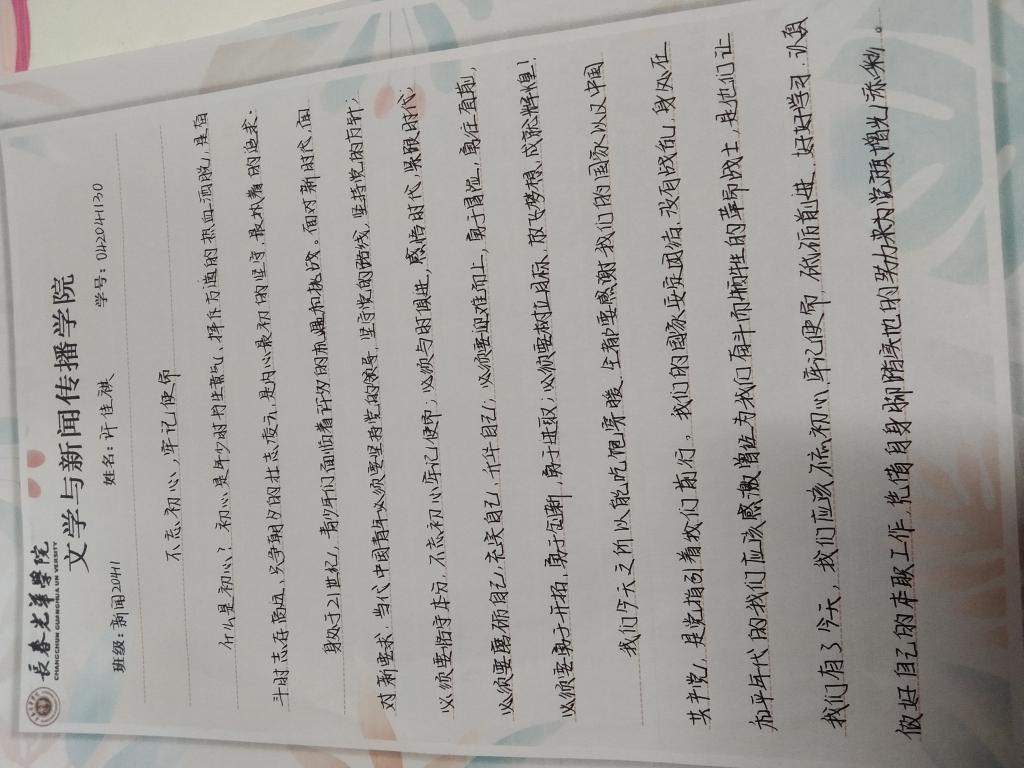 長春光華學院
CHANGCHUN GUANGHUA UNIVERSITY
文学与新闻传播学院
班级：新闻20H1 姓名：许佳祺 学号：0H204H130
不忘初心，牢记使命
什么是初心？初心是年少时的意气，挥斥方遒的热血洒脱，是奋
斗时志存高远，只争朝夕的壮志凌云，是内心最初的坚守，最执着的追求.
身处于21世纪，青少年们面临着许多的机遇和挑战。面对新时代，面
对新要求，当代中国青年必须要坚持党的领导，坚守党的路线，坚持党的方针；
必须要恪守本分，不忘初心牢记使命；必须与时俱进，感悟时代，紧跟时代；
必须要磨砺自己，充实自己，升华自己；必须要迎难而上，勇于冒险，勇往直前；
必须要勇于开拓，勇于创新，勇于进取；必须要树立目标，放飞梦想，成就辉煌！
我们今天之所以能吃饱穿暖，全都要感谢我们的国家以及中国
共产党，是党指引着我们前行。我们的国家安定团结，没有战乱，身处在
和平年代的我们应该感激曾经为我们奋斗而牺牲的革命战士，是他们让
我们有了今天，我们应该不忘初心，牢记使命，砥砺前进，好好学习，认真
做好自己的本职工作，凭借自身
的努力来为党政增光添彩。